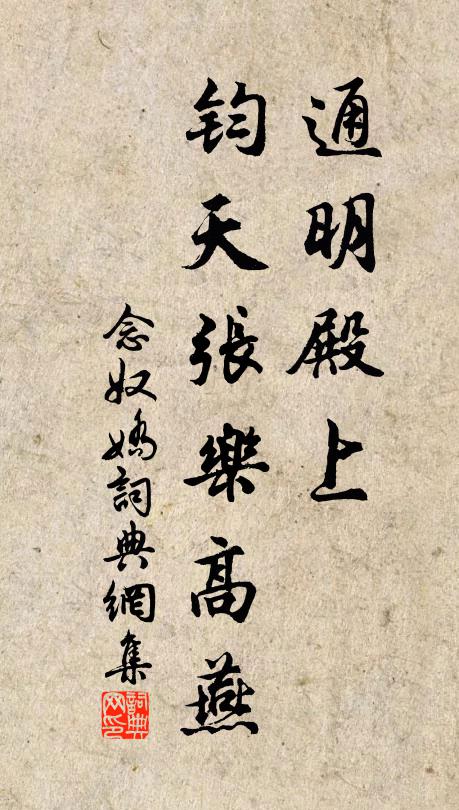 通明殿上
鈞天張樂高燕
念奴嬌詞典網集
詞典
网印